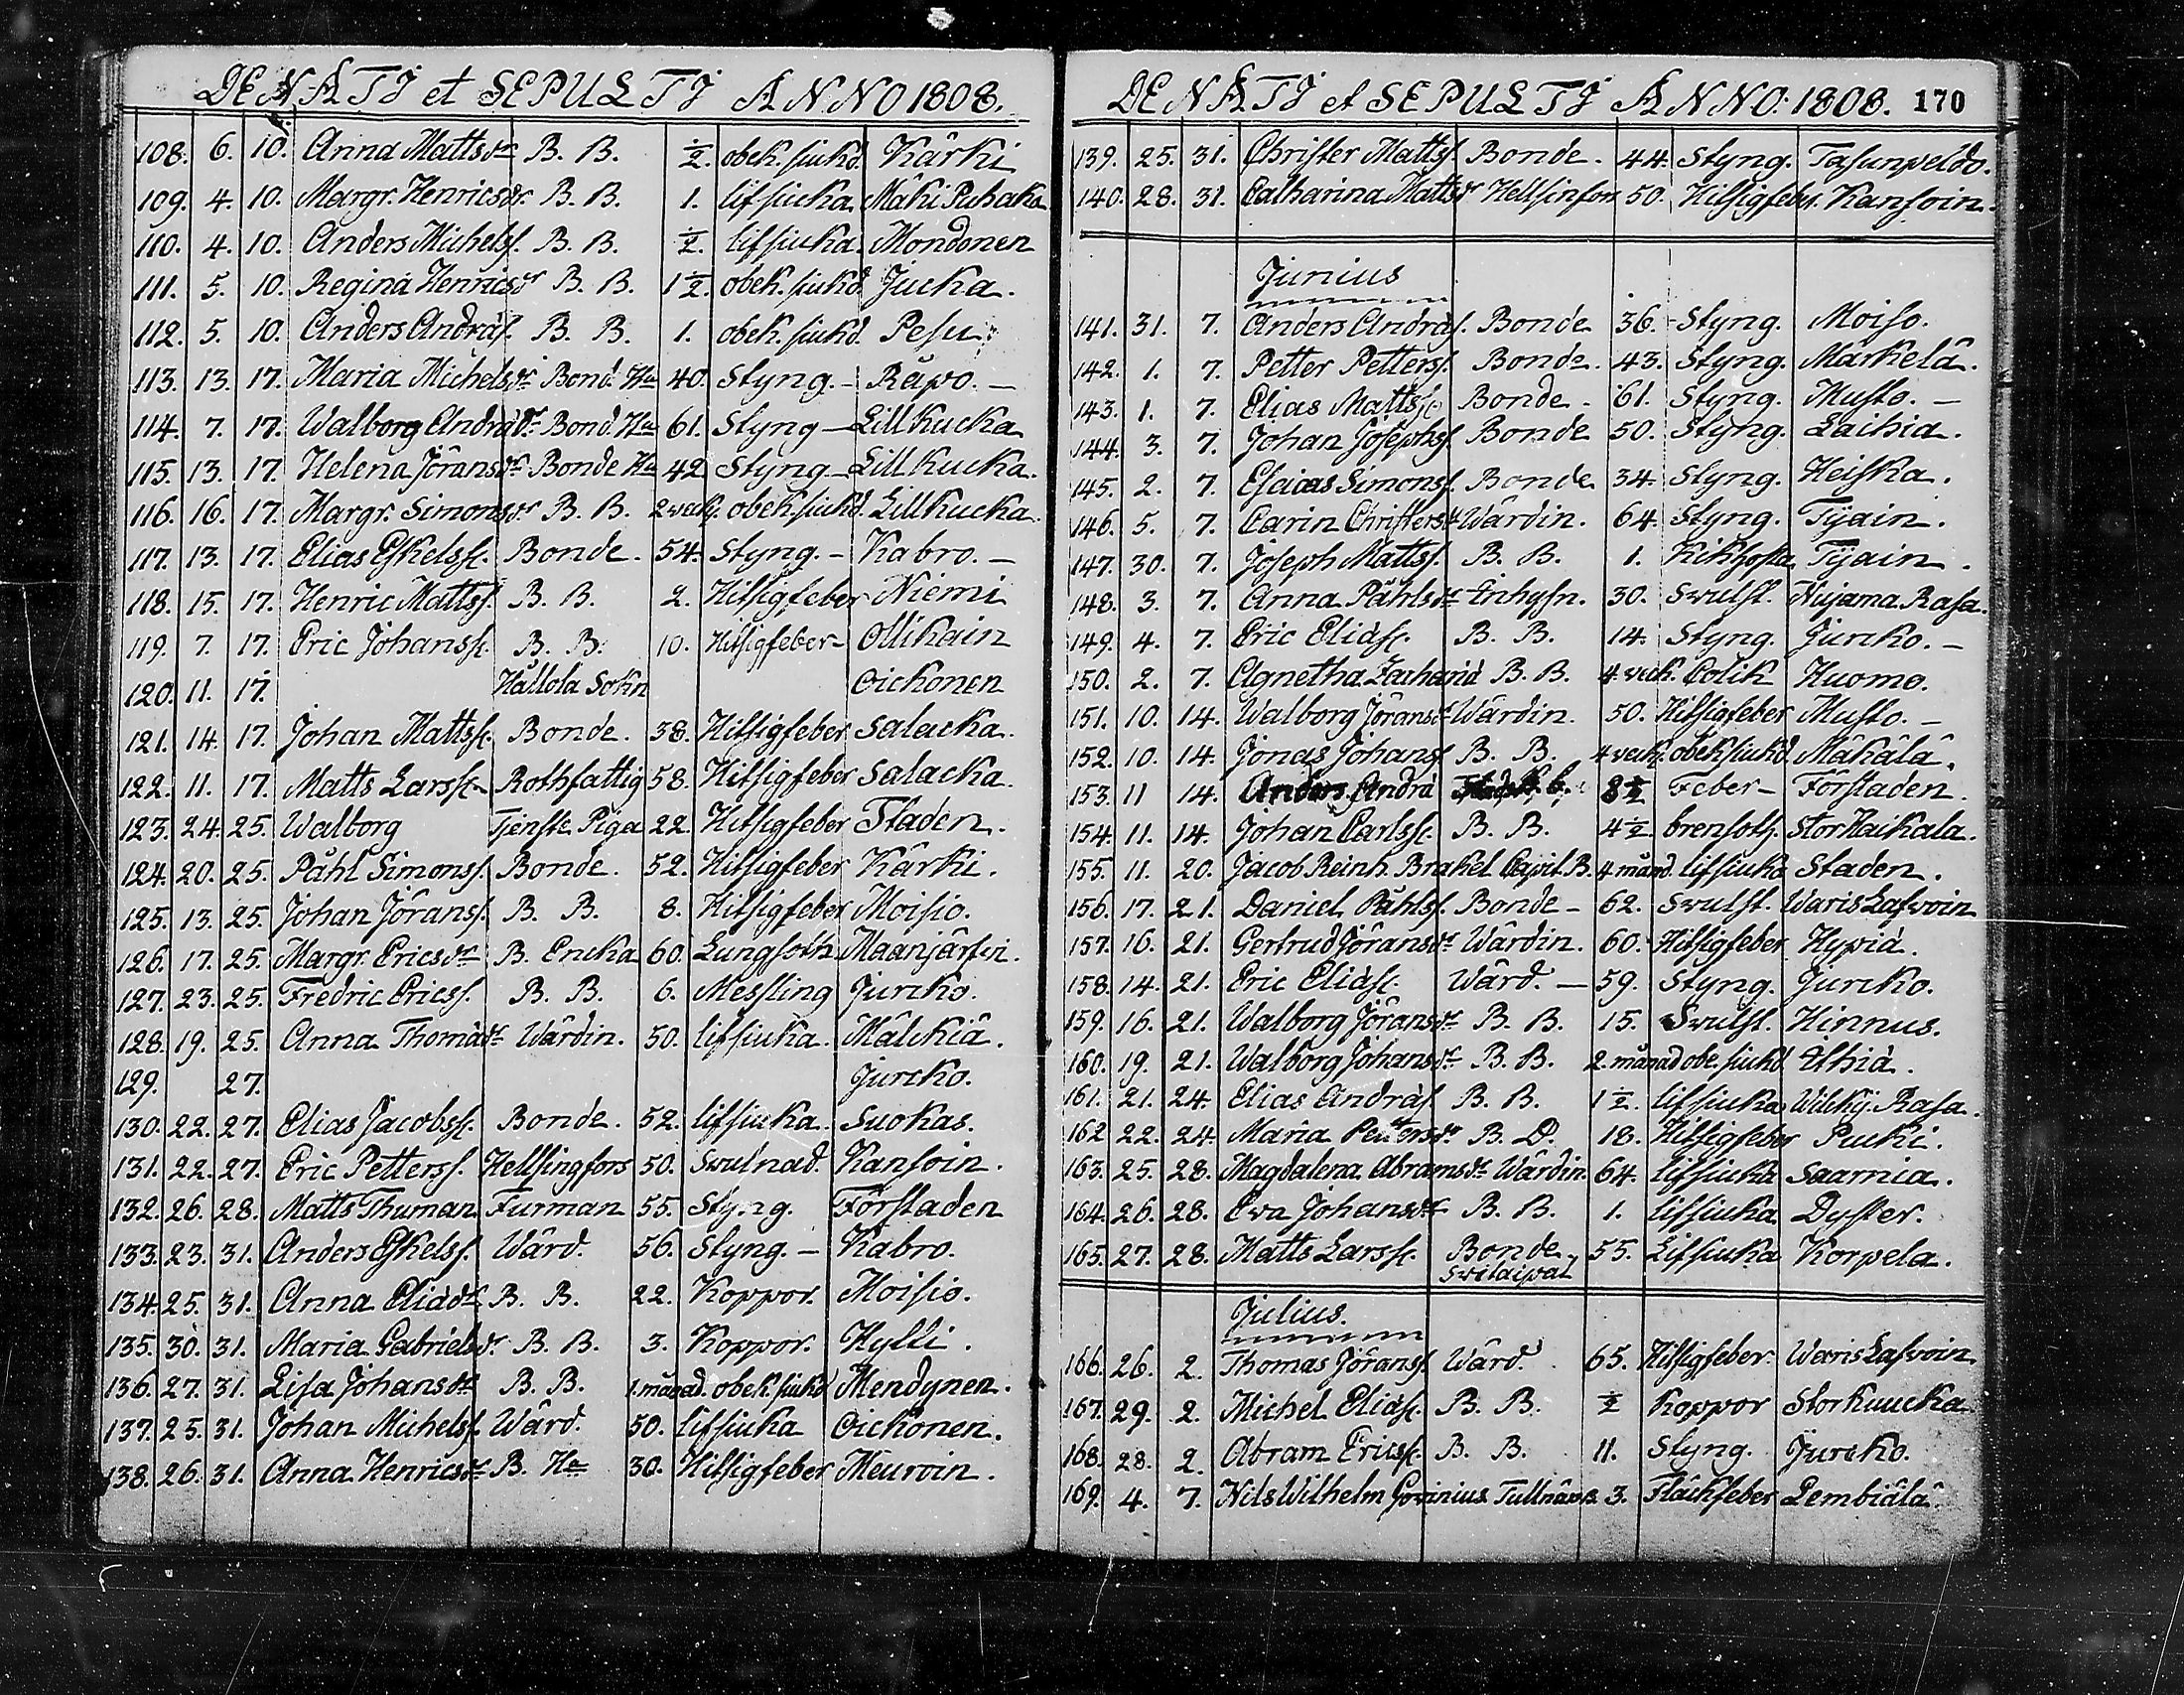 DENATI et SEPULTI ANNO 1808.
108. 6. 10. Anna Mattsdr B. B. ½. obek. siukd. Kärki
109. 4. 10. Margr. Henricsdr. B. B. 1. lifsiuka. Mäki Puhaka
110. 4. 10. Anders Michelss. B. B. ½. lifsiuka. Mondonen
111. 5. 10. Regina Henricsdr B. B. 1½. obek. siukd. Jucka.
112. 5. 10. Anders Andräs. B. B. 1. obek. siukd. Pesu.
113. 13. 17. Maria Michelsdr Bond. Hu 40. Styng. - Räpo. -
114. 7. 17. Walborg Andrädr Bond. Hu 61. Styng - Lill Kucka
115. 13. 17. Helena Jöransdr Bonde Hu 42 Styng - Lill Kucka.
116. 16. 17. Margr. Simonsdr B. B. 2 veck. obek. siukd. Lill Kucka.
117. 13. 17. Elias Eskelss. Bonde. 54. Styng. - Kabro. -
118. 15. 17. Henric Mattss. B. B. 2. Hitsigfeber Niemi
119. 7. 17. Eric Johanss. B. B. 10. Hitsigfeber - Ollikain
120. 11. 17. Hållola Sokn Oickonen
121. 14. 17. Johan Mattss. Bonde. 38. Hitsigfeber Salacka.
122. 11. 17. Matts Larss. Rothfattig 58. Hitsigfeber Salacka.
123. 24. 25. Walborg Tjenste Piga 22. Hitsigfeber Staden.
124. 20. 25. Påhl Simonss. Bonde. 52. Hitsigfeber Kärki.
125. 13. 25. Johan Jöranss. B. B. 8. Hitsigfeber Moisio.
126. 17. 25. Margr. Ericsdr B. Encka 60. Lungsoth Maanjärfvi.
127. 23. 25. Fredric Ericss. B. B. 6. Messling Jurcko.
128. 19. 25. Anna Thomädr Wärdin. 50. lifsiuka. Mälckiä.
129. 27. Jurcko.
130. 22. 27. Elias Jacobss. Bonde. 52. lifsiuka. Suokas.
131. 22. 27. Eric Petterss. Hellsingfors 50. Svulnad. Kansoin.
132. 26. 28. Matts Thuman Furman 55. Styng. Förstaden
133. 23. 31. Anders Eskelss. Wärd. 56. Styng. - Kabro.
134. 25. 31. Anna Eliädr B. B. 22. Koppor. Moisio.
135. 30. 31. Maria Gabrielsdr. B. B. 3. Koppor. Hylli.
136. 27. 31. Lisa Johansdr B. B. 1. månad. obek. siukd Mendynen.
137. 25. 31. Johan Michelss Wärd. 50. lifsiuka Oickonen.
138. 26. 31. Anna Henricsdr B. Hu 30. Hitsigfeber Meuroin.
DENATI et SEPULTI ANNO. 1808. 170
139. 25. 31. Christer Mattss. Bonde. 44. Styng. Tasunpeldo.
140. 28. 31. Catharina Mattsdr Hellsinfors 50. Hitsigfeber. Kansoin.
Junius
141. 31. 7. Anders Andräs. Bonde 36. Styng. Moiso.
142. 1. 7. Petter Petterss. Bonde. 43. Styng. Märkelä.
143. 1. 7. Elias Mattss. Bonde - 61. Styng. Musto. -
144. 3. 7. Johan Josephss. Bonde 50. Styng. Laihia.
145. 2. 7. Esaias Simonss. Bonde 34 Styng. Heiska.
146. 5. 7. Carin Christersdr Wärdin. 64 Styng. Tijain.
147. 30. 7. Joseph Mattss. B. B. 1. Kikhosta Tijain.
148. 3. 7. Anna Påhlsdr Inhysn. 30. Svulst. Nujama Rasa.
149. 4. 7. Eric Eliäs. B. B. 14. Styng. Jurcko. -
150. 2. 7. Agnetha Zachariä B. B. 4 veck. Colik Huomo.
151. 10. 14. Walborg Jöransdr Wärdin. 50. Hitsigfeber Musto. -
152. 10. 14. Jonas Johanss B. B. 4 veck. obek siukd. Mäkälä.
153. 11 14. Anders Andrä 8½ Feber - Förstaden.
154. 11. 14. Johan Carlss. B. B. 4½ brensoth. Stor Raikala.
155. 11. 20. Jacob Reinh. Brakel Capit. B. 4 månad. lifsiuka Staden.
156. 17. 21. Daniel Påhlss. Bonde - 62. Svulst. Waris Lasvoin
157. 16. 21. Gertrud Jöransdr Wärdin. 60. Hitsigfeber Hypiä.
158. 14. 21. Eric Eliäs. Wärd. - 59. Styng. Jurcko.
159. 16. 21. Walborg Jöransdr B. B. 15. Svulst. Hinnus.
160. 19. 21. Walborg Johansdr B. B. 2. månad obe. siukd Ithiä.
161. 21. 24. Elias Andräs. B. B. 1½. lifsiuka Wilckij. Rasa.
162 22. 24. Maria Pettersdr B. D. 18. Hitsigfeber Pucki.
163. 25. 28. Magdalena Abramsdr Wärdin. 64. lifsiuka Saarnia.
164. 26. 28. Eva Johansdr B. B. 1. lifsiuka Dyster.
165. 27. 28. Matts Larss. Bonde 55. Lifsiuka Korpela.
Svilaipal
Julius.
166. 26. 2. Thomas Jöranss. Wärd. 65. Hitsigfeber. Waris Lasvoin
167. 29. 2. Michel Eliäs. B. B. ½ Koppor Stor Kuucka
168. 28. 2. Abram Ericss. B. B. 11. Styng. Jurcko.
169. 4. 7. Nils Wilhelm Govinius Tullnärs B. 3. Fläckfeber Lembiälä.